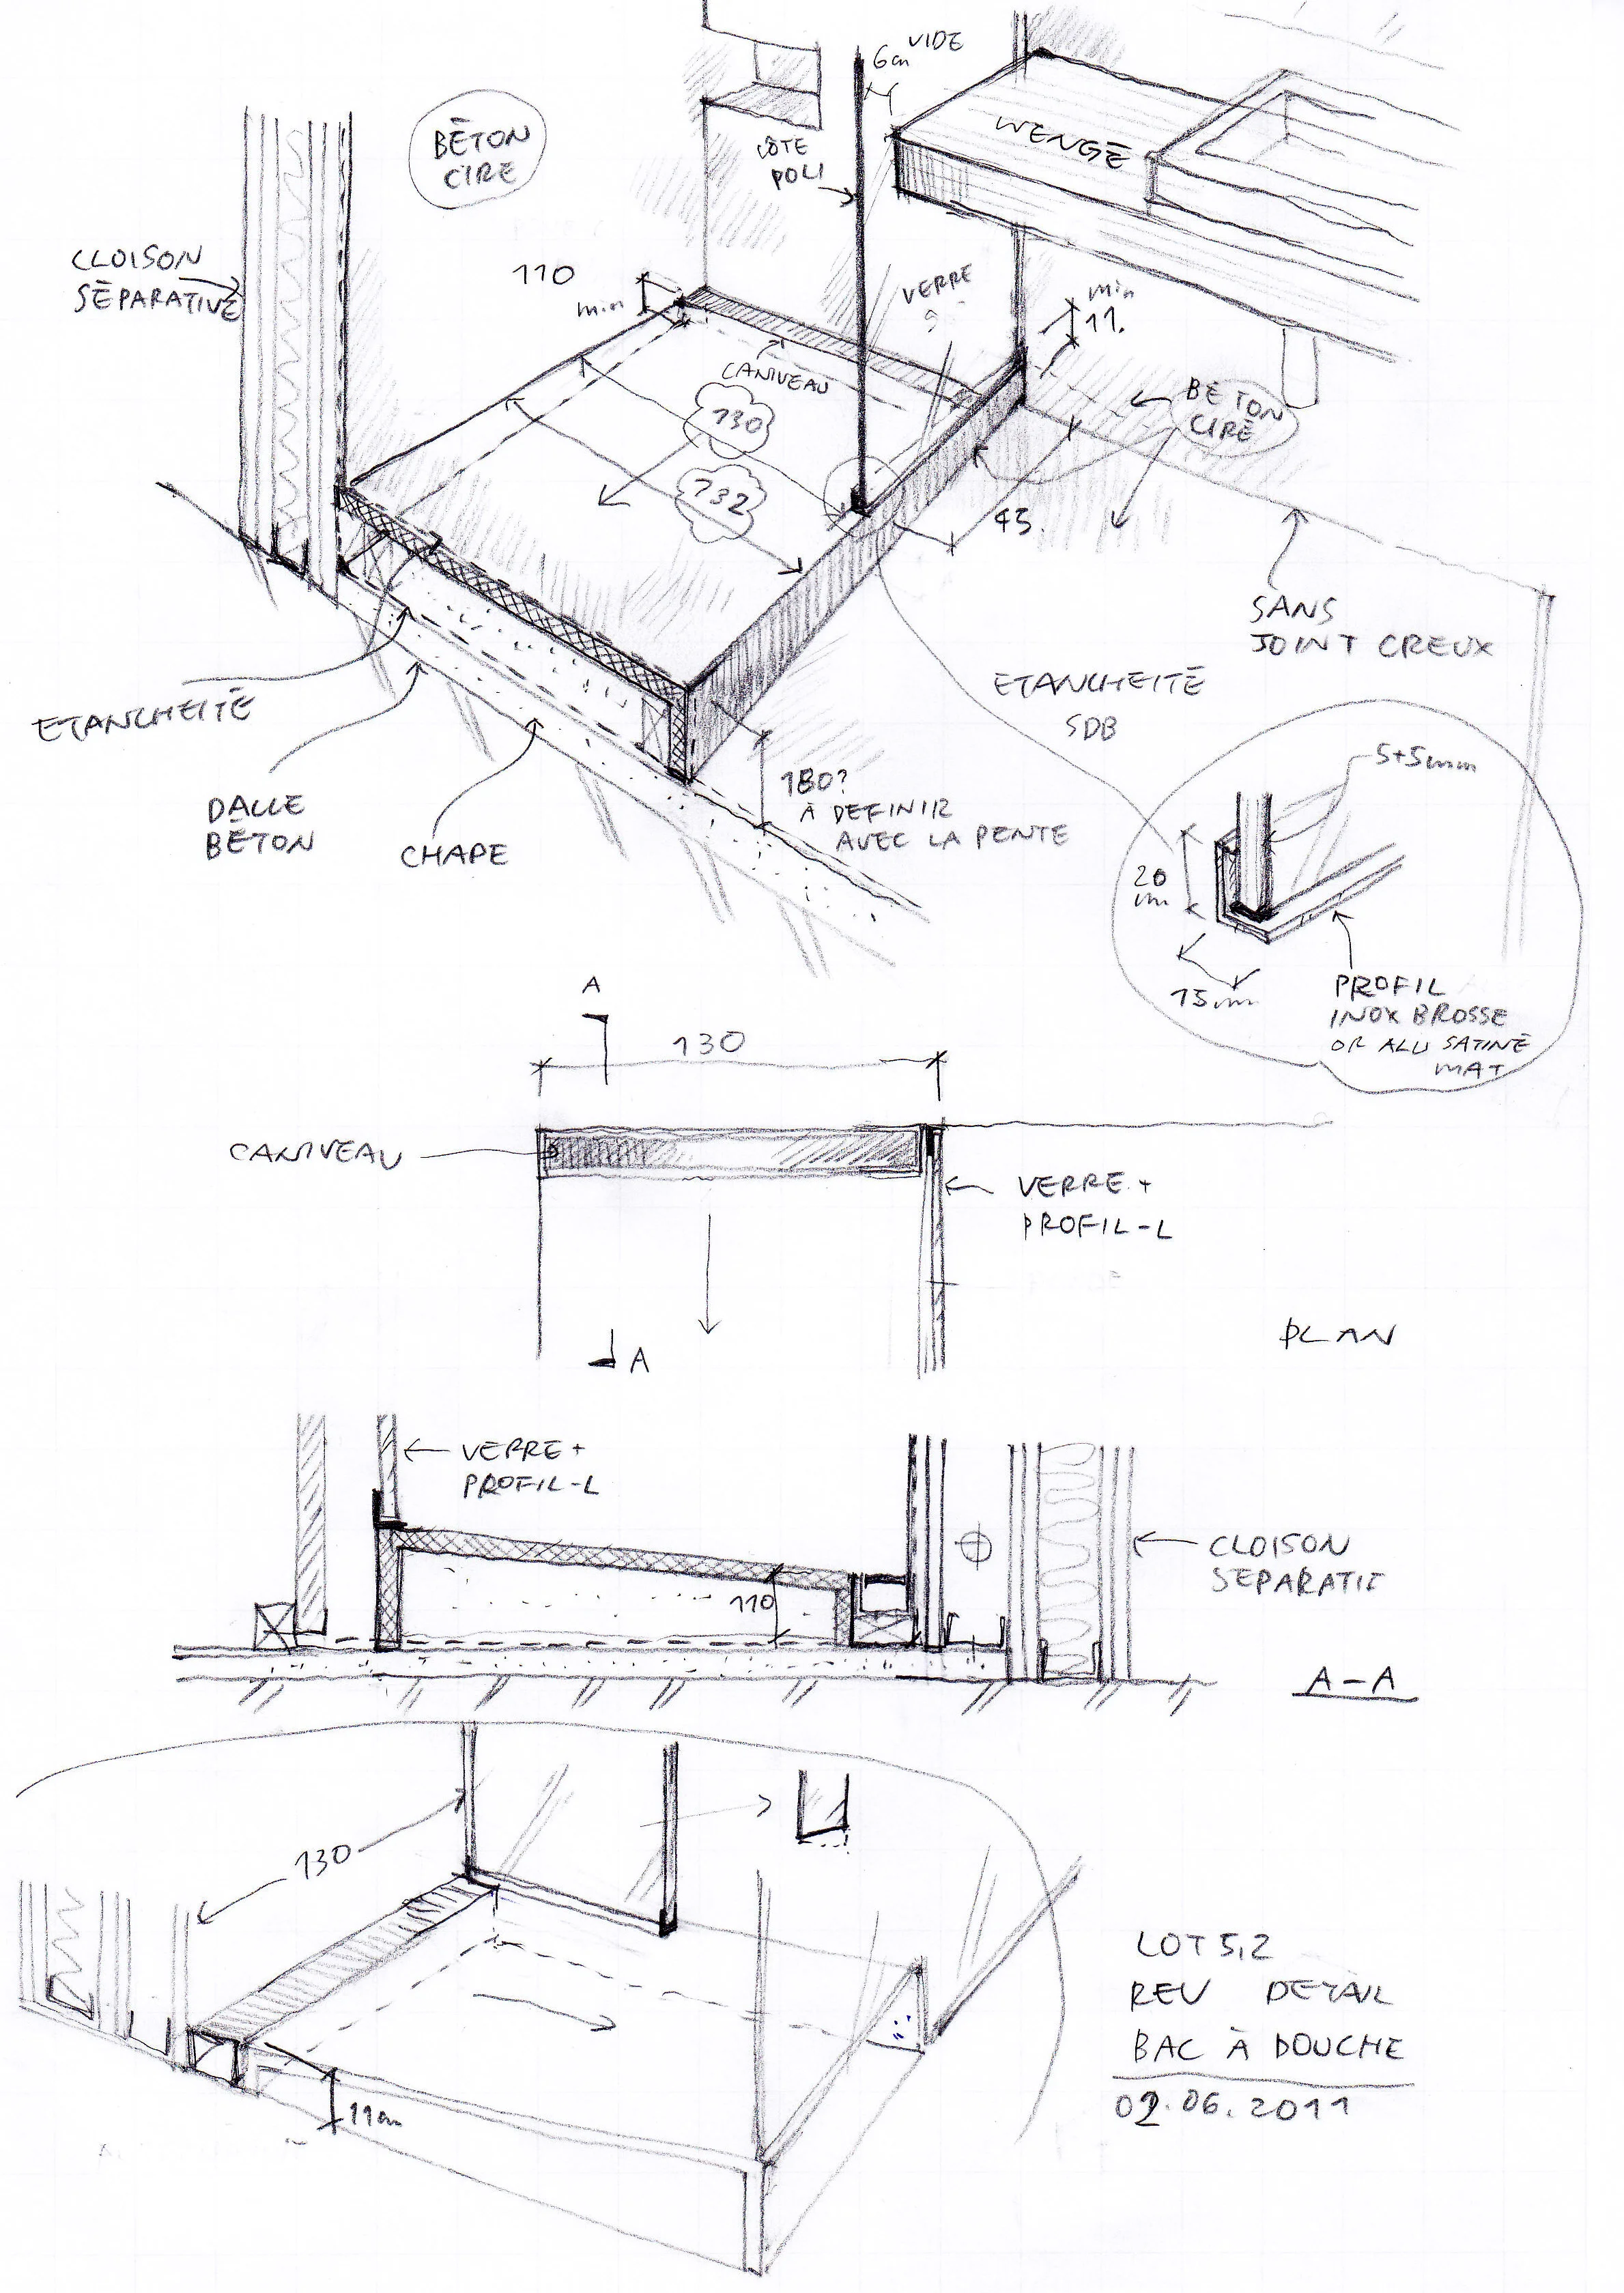 6cm VIDE
BÉTON
CIRE
CÔTE
POLI
WENGÉ
CLOISON
SÉPARATIVE
110
min
VERRE
min
11.
CANIVEAU
BETON
CIRÉ
130
132
45.
SANS
JOINT CREUX
ETANCHEITÉ
SDB
ETANCHEITÉ
5+5mm
180?
À DEFINIR
AVEC LA PENTE
DALLE
BÉTON
CHAPE
20
mm
15mm
PROFIL
INOX BROSSE
OR ALU SATINÉ
MAT
A
130
CANIVEAU
VERRE +
PROFIL-L
PLAN
A
VERRE +
PROFIL-L
CLOISON
110
A-A
130
LOT 5,2
REV DETAIL
BAC À DOUCHE
02.06.2011
11cm